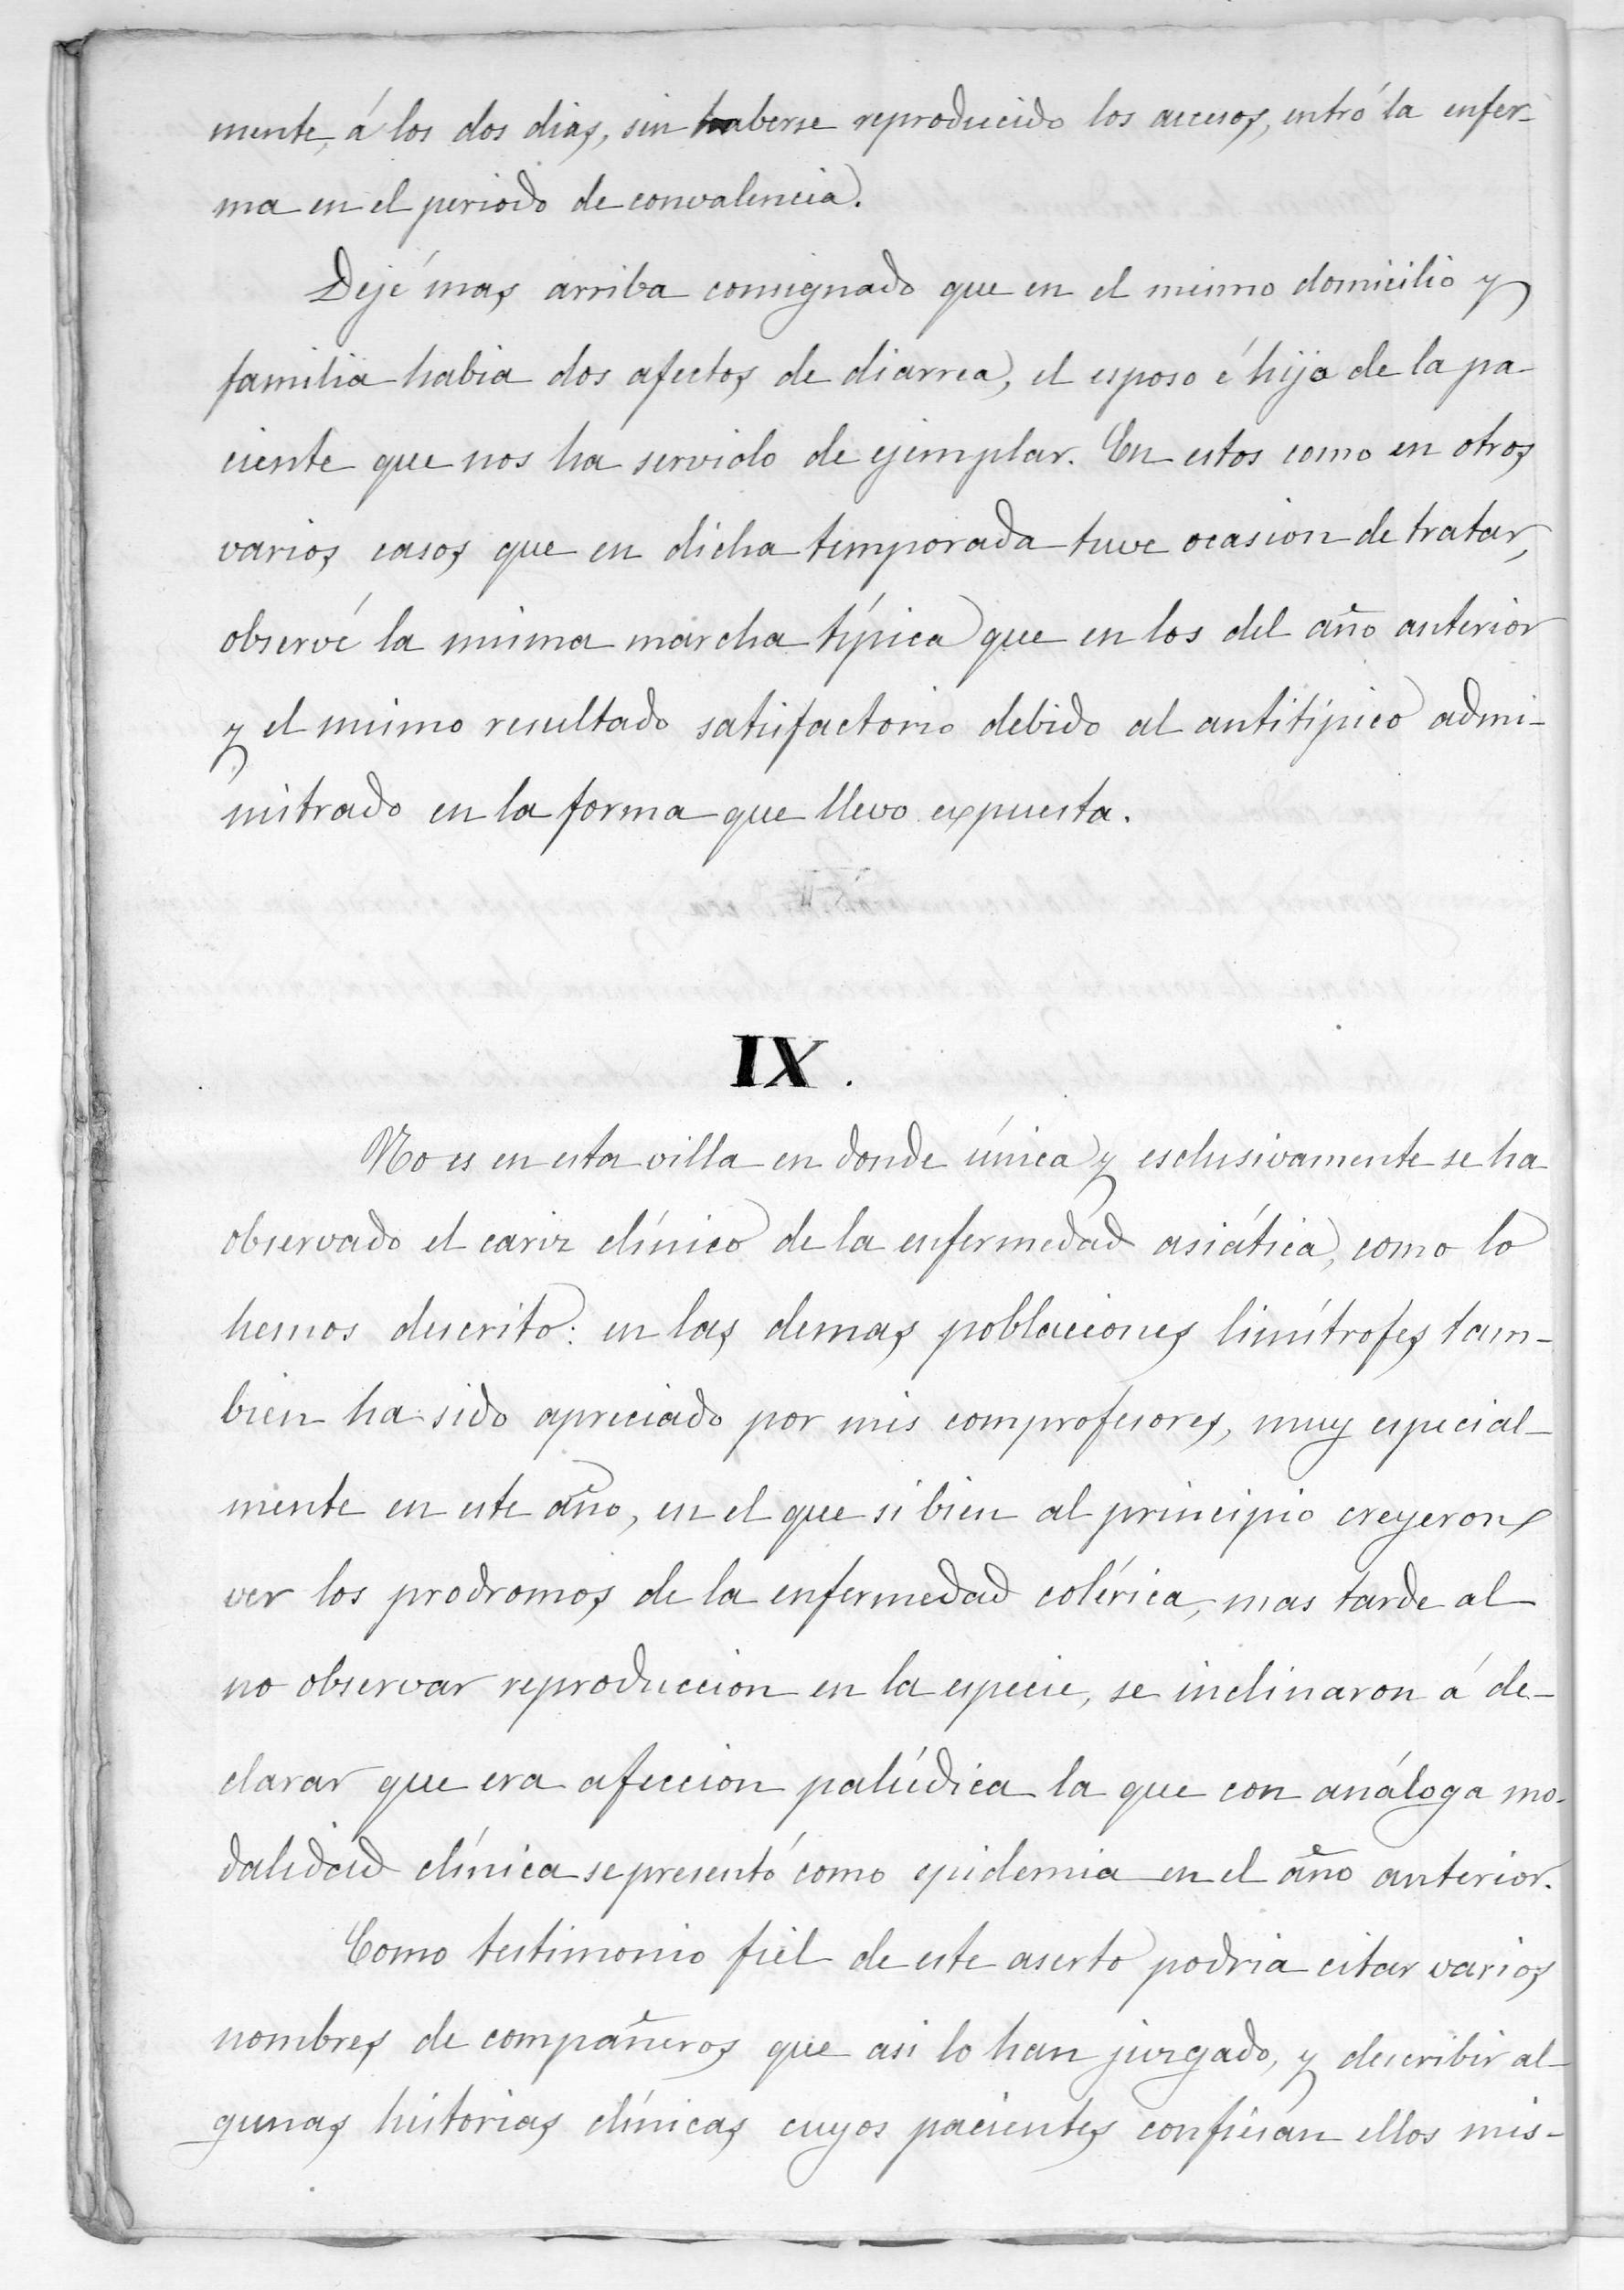 mente, á los dos dias, sin haberse reproducido los accesos, entró la enfer-
ma en el periodo de convalencia.
Dejé mas arriba consignado que en el mismo domicilio y
familia habia dos afectos de diarrea, el esposo é hija de la pa-
ciente que nos ha servido de ejemplar. En estos como en otros
varios casos que en dicha temporada tuve ocasion de tratar,
observé la misma marcha típica que en los del año anterior
y el mismo resultado satisfactorio debido al antitípico admi-
nistrado en la forma que llevo expuesta.
IX.
No es en esta villa en donde única y esclusivamente se ha
observado el cariz clínico de la enfermedad asiática, como lo
hemos descrito: en las demas poblaciones limítrofes tam-
bien ha sido apreciado por mis comprofesores, muy especial-
mente en este año, en el que si bien al principio creyeron
ver los prodromos de la enfermedad colérica, mas tarde al
no observar reproduccion en la especie, se inclinaron á de-
clarar que era afeccion palúdica la que con análoga mo-
dalidad clínica se presentó como epidemia en el año anterior.
Como testimonio fiel de este aserto podria citar varios
nombres de compañeros que asi lo han juzgado, y describir al-
gunas historias clínicas cuyos pacientes confiesan ellos mis-